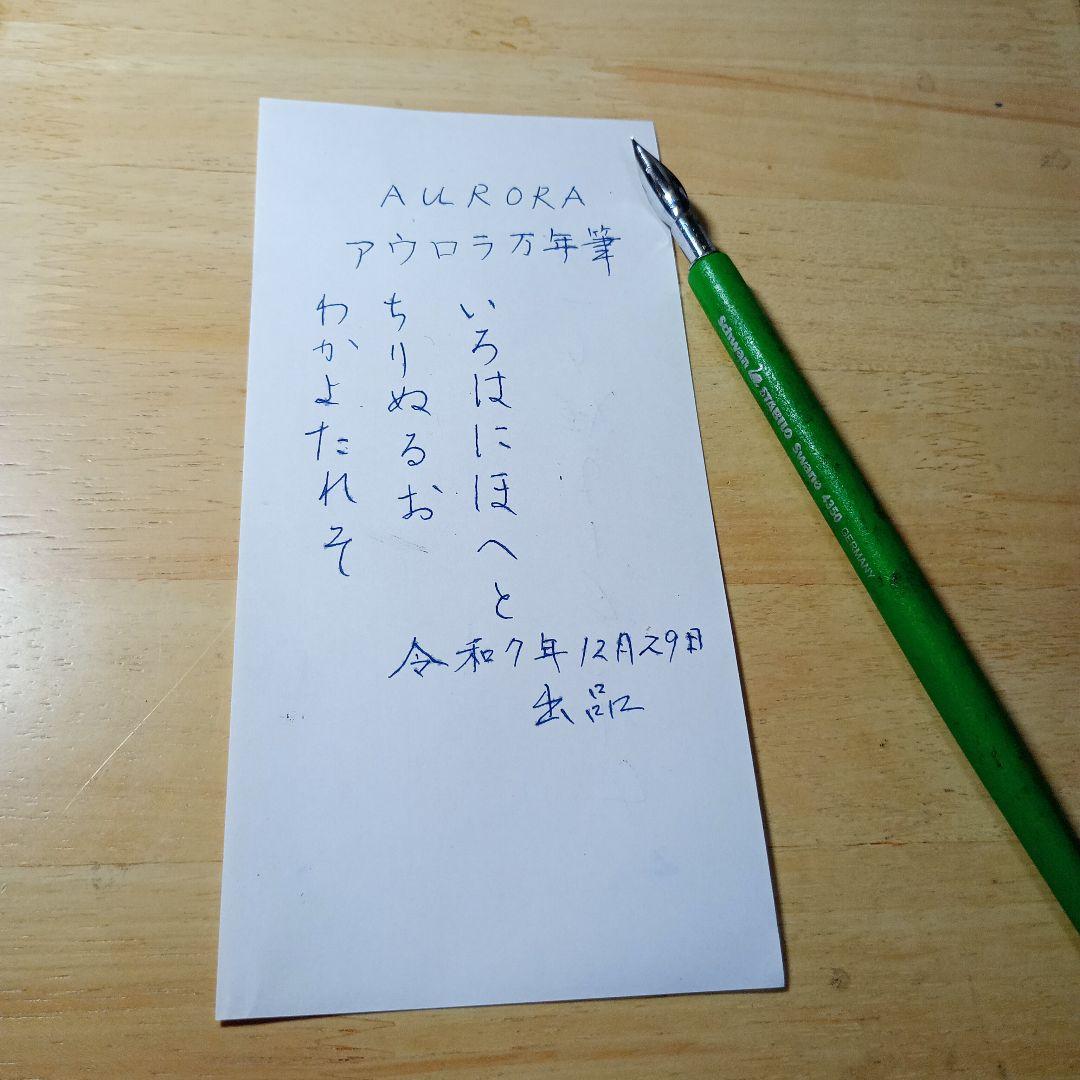 AURORA
アウロラ万年筆
いろはにほへと
ちりぬるお
わかよたれそ
令和7年12月29日
出品
Schwan STABILO Swano 4350 GERMANY